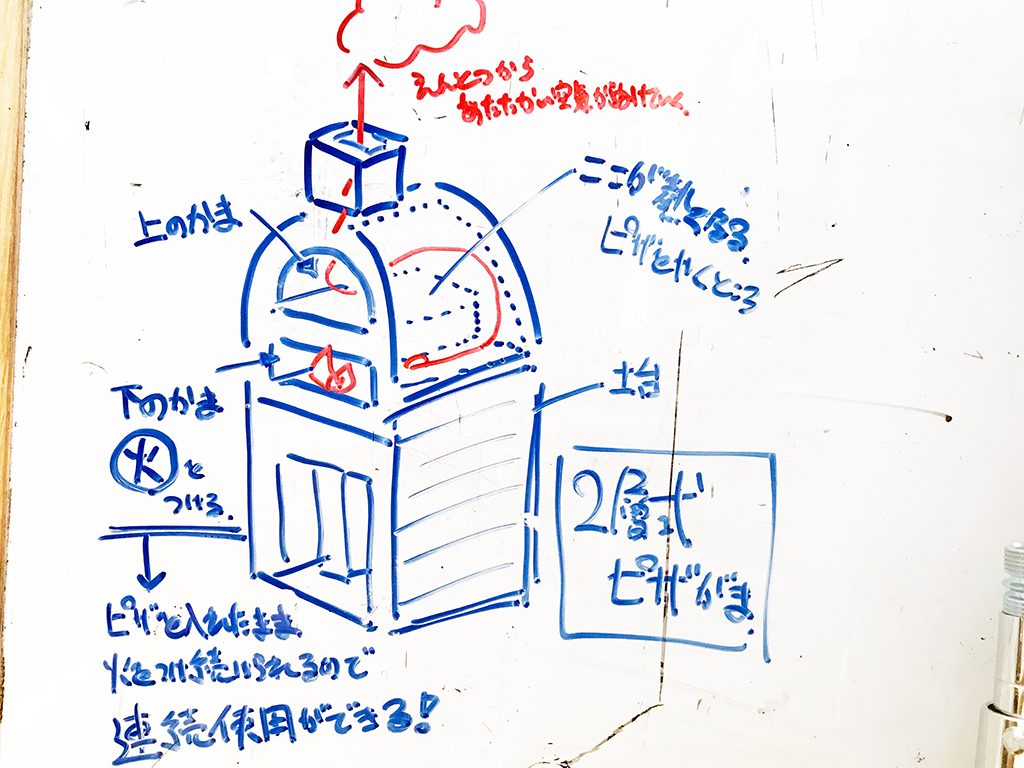 えんとつから
あたたかい空気が抜けていく。
ここが熱くなる
ピザをやくところ
上のかま
下のかま
火を
つける。
土台
2層式
ピザがま
ピザを入れたまま
火をつけ続けられるので
連続使用ができる!